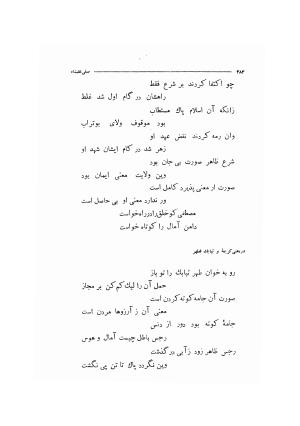 ۲۸۴
صفی علیشاه
چو اکتفا کردند بر شرع فقط
راهشان در گام اول شد غلط
زانکه آن اسلام پاك مستطاب
بود موقوف ولای بوتراب
وان رمه کردند نقض عهد او
زهر شد در کام ایشان شهد او
شرع ظاهر صورت بی جان بود
وین ولایت معنی ایمان بود
صورت ار معنی پذیرد کامل است
ور ندارد معنی او بی حاصل است
مصطفی کو خلق را در راه خواست
دامن آمال را کوتاه خواست
در معنی کریمهٔ و ثیابك فطهر
رو به خوان طهر ثیابك را تو باز
حمل آن را لیك کم کن بر مجاز
صورت آن جامه کوته کردن است
معنی آن ز آرزوها مردن است
جامهٔ کوته بود دور از دنس
رجس باطل چیست آمال و هوس
رجس ظاهر زود ز آبی در گذشت
وین نگردد پاك تا تن پی نگشت